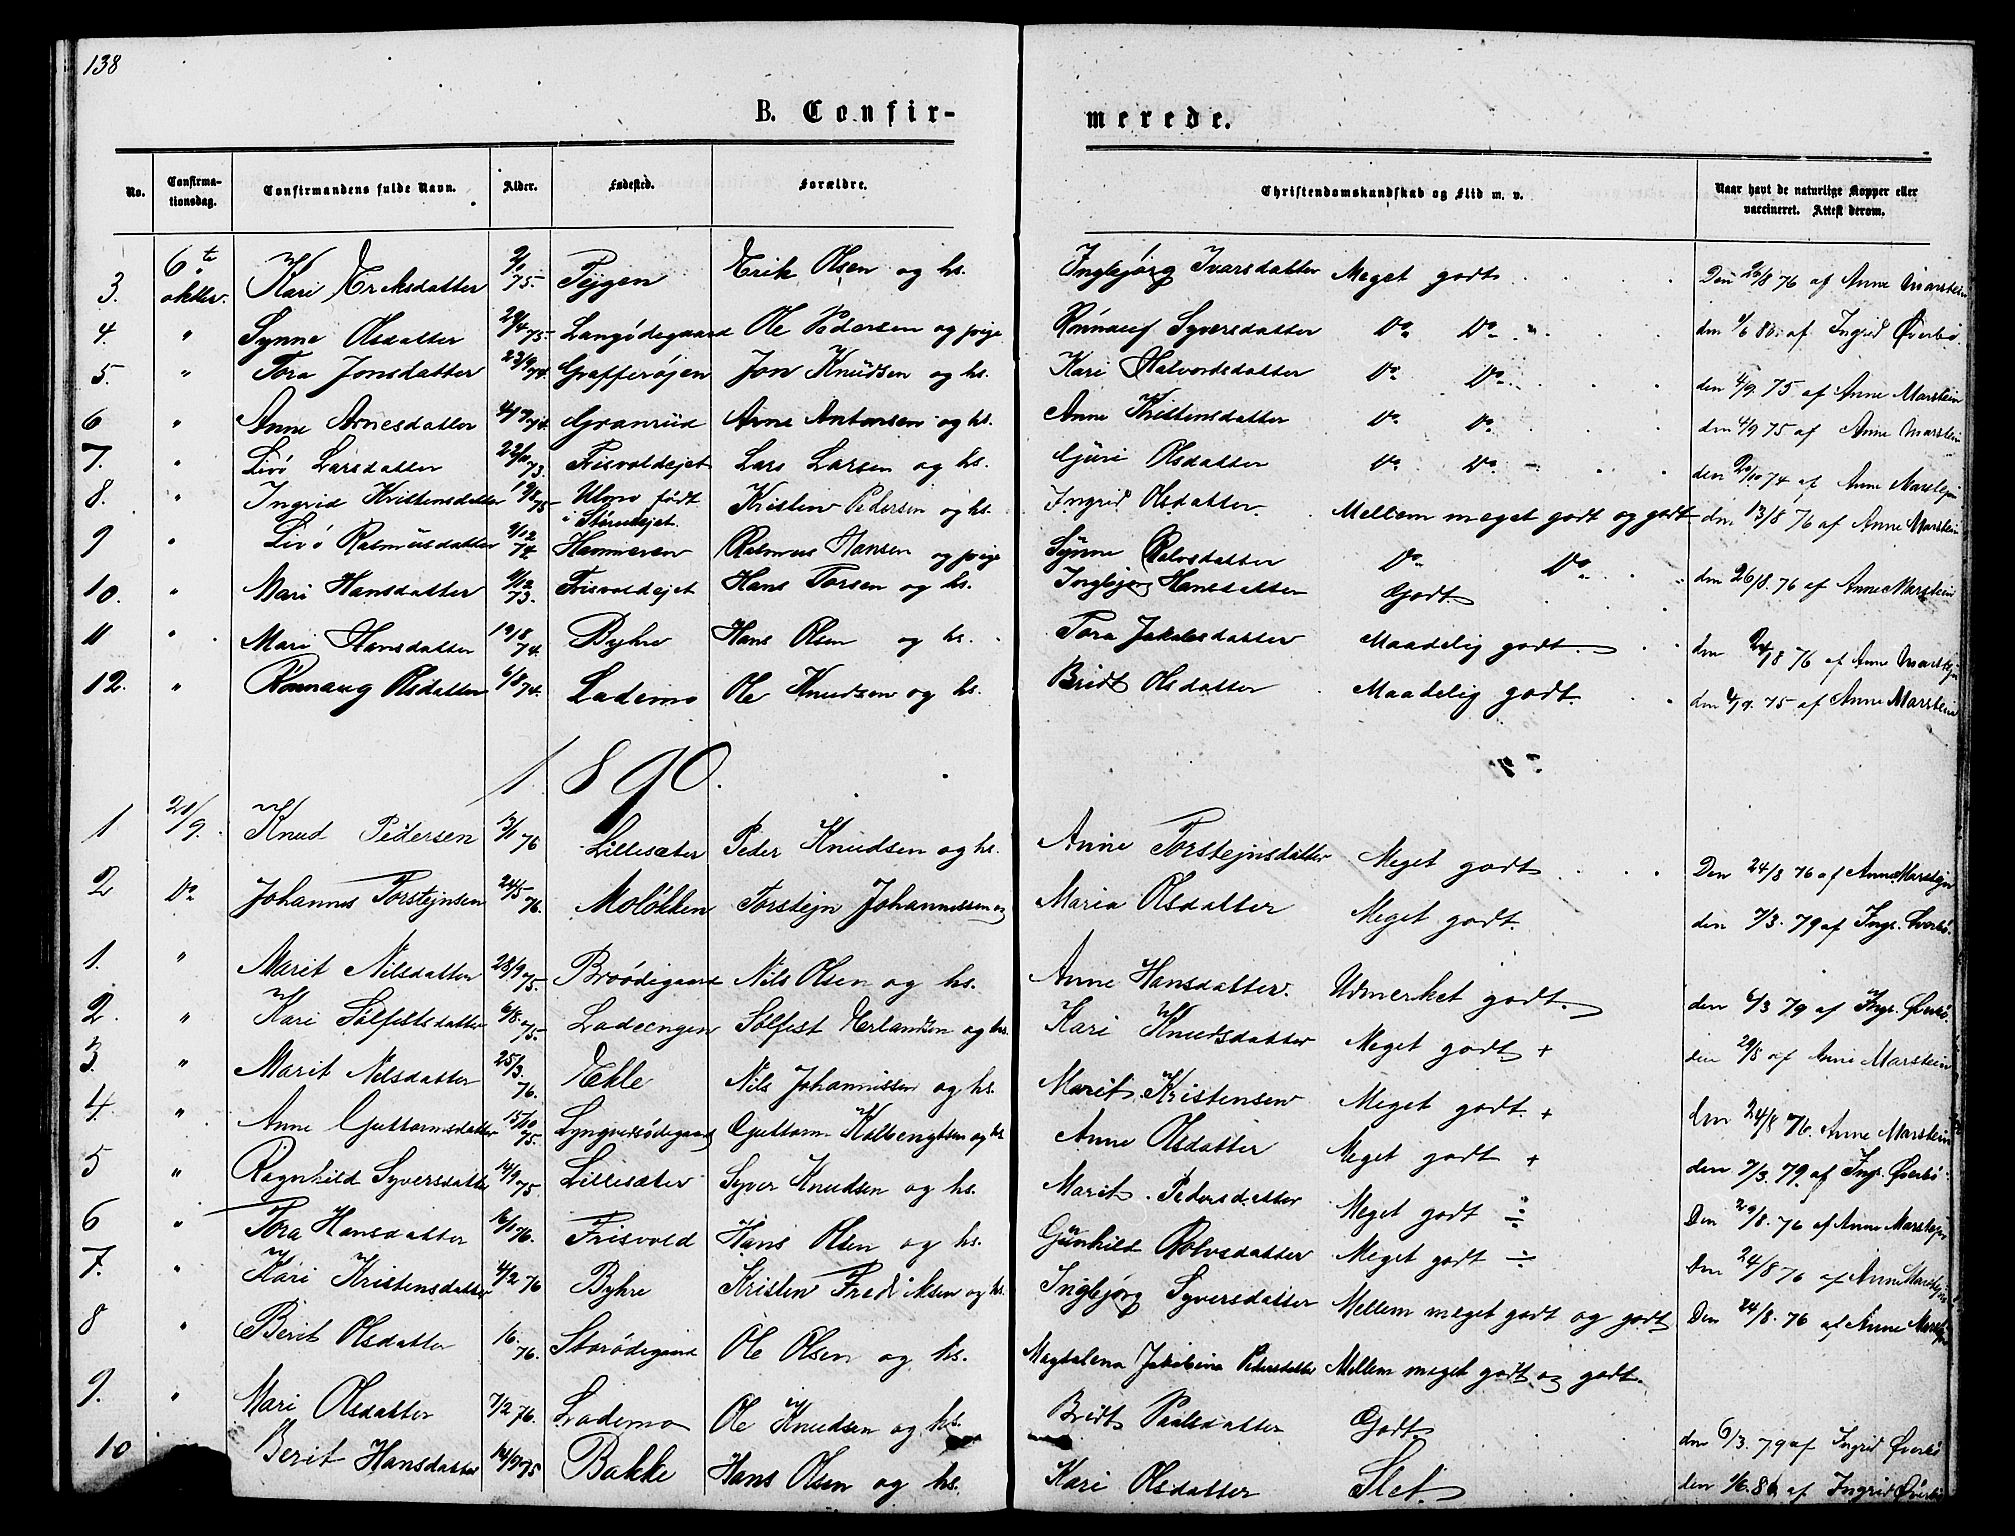 138
B. Confir-
merede.
No.
Confirma-
tionsdag.
Confirmandens fulde Navn.
Alder.
Fødested.
Forældre.
Christendomskundskab og Flid m. v.
Naar havt de naturlige Kopper eller
vaccineret. Attest derom.
3. 6t oktbr. Kari Eriksdatter 75. Erik Olsen og hs. Ingbejørg Ivarsdatter Meget godt Den 26/8 76 af Anne Marstein
4. " Synne Olsdatter 75. Langødegaard Ole Pedersen og pige Syversdatter Do Do " den 80. af Ingrid Øverbø.
5. " Tora Jonsdatter 23/9 74. Grafferøjen Jon Knudsen og hs. Kari Halvordsdatter Do Do den 4/9. 75 af Anne Marstein
6 " Anne Arnesdatter 74. Granrud Arne Antonsen og hs. Anne Kristensdatter Do Do den 4/9 75 af Anne Marstein
7. " Livø Larsdatter 73. Frisvoldejet Lars Larsen og hs. Guri Olsdatter Do Do den 74 af Anne Marstejn
8. " Ingrid Kristensdatter 75 født
i Kristen Pedersen og hs. Ingrid Olsdatter. Mellem meget godt og godt den 13/8 76 af Anne Marstein
9 " Livø Rasmusdatter 9/12 74. Rasmus Hansen og pige Synne Do Do
10. " Mari Hansdatter 73. Frisvoldejet Hans Torsen og hs. Ingbejør Hansdatter Godt den 26/8. 76 af Anne Marstein
11 " Mari Hansdatter 19/8 74. Byhre Hans Olsen og hs. Tora Jakobsdatter Maadelig godt den 24/8 76 af Anne Marstejn
12. " Rønnaug Olsdatter 6/8 74. Lademo Ole Knudsen og hs. Bridt Olsdatter Maadelig godt den 4/9. 75 af Anne Marstein
1890.
1 21/9. Knud Pedersen 76 Lillesæter Peder Knudsen og hs. Anne Torstejnsdatter Meget godt Den 24/8 76 af Anne Marstejn
2 Do Johannes Torstejnsen 24/5 76. Moløkken Torstejn Johannessen og Maria Olsdatter Meget godt. den 7/3. 79 af Ingr. Øverbø.
1. " Marit Nilsdatter 28/9 75. Broødegaard Nils Olsen og hs. Anne Hansdatter. Udmerket godt. den 6/3 79 af Ingr. Øverbø.
2. " Kari Solfestsdatter 6/8. 75. Ladeengen Solfest Erlandsen og hs. Kari Knudsdatter Meget godt + den 29/8 af Anne Marstein
3. " Marit Nilsdatter 25/3. 76. Ekle Nils Johannissen og hs. Marit Kristensen Meget godt + den 24/8 76. Anne Marstein
4. " Anne Guttormsdatter 15/10 75. Guttorm og hs Anne Olsdatter Meget godt + den 7/3. 79. af Ingr. Øverbø
5 " Ragnhild Syversdatter 14/9 75. Lillesæter Syver Knudsen og hs. Marit Pedersdatter Meget godt ÷ Den 29/8. 76 af Anne Marstejn
6 " Tora Hansdatter 76. Frisvold Hans Olsen og hs. Gunhild Rolvsdatter Meget godt ÷ Den 24/8 76 af Anne Marstejn
7. " Kari Kristensdatter 4/2 76 Byhre Kristen Fredriksen og hs. Ingbejørg Syversdatter Mellem meget godt og godt Den 24/8. 76 af Anne Marstejn
8 " Berit Olsdatter 76. Storødegaard Ole Olsen og hs. Magdalena Jakobina Pedersdatter Mellem meget godt og godt.
9. " Mari Olsdatter 7/2 76. Lademo Ole Knudsen og hs. Bridt Paalsdatter Godt. den 6/3. 79 af Ingrid Øverbø
10 Berit Hansdatter 14/9 75 Bakke Hans Olsen og hs. Kari Olsdatter Slet. den af Ingrid Øverbø